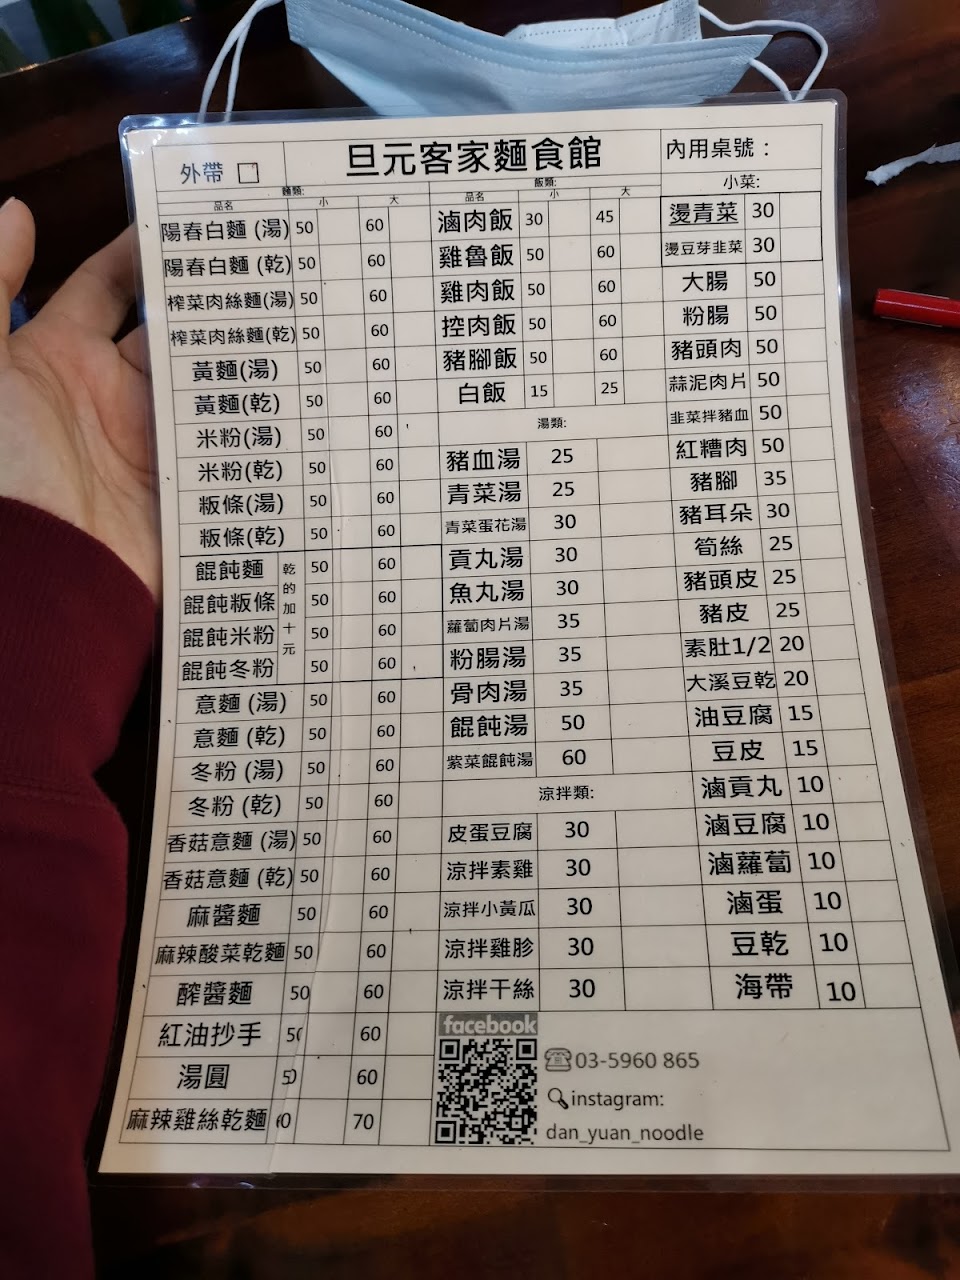 外帶 □ 旦元客家麵食館 內用桌號：
麵類:
品名 小 大
陽春白麵 (湯) 50 60
陽春白麵 (乾) 50 60
榨菜肉絲麵(湯) 50 60
榨菜肉絲麵(乾) 50 60
黃麵(湯) 50 60
黃麵(乾) 50 60
米粉(湯) 50 60
米粉(乾) 50 60
粄條(湯) 50 60
粄條(乾) 50 60
餛飩麵 50 60
餛飩粄條 50 60
餛飩米粉 50 60
餛飩冬粉 50 60
乾的加十元
意麵 (湯) 50 60
意麵 (乾) 50 60
冬粉 (湯) 50 60
冬粉 (乾) 50 60
香菇意麵 (湯) 50 60
香菇意麵 (乾) 50 60
麻醬麵 50 60
麻辣酸菜乾麵 50 60
醡醬麵 50 60
紅油抄手 50 60
湯圓 50 60
麻辣雞絲乾麵 60 70
飯類:
品名 小 大
滷肉飯 30 45
雞魯飯 50 60
雞肉飯 50 60
控肉飯 50 60
豬腳飯 50 60
白飯 15 25
湯類:
豬血湯 25
青菜湯 25
青菜蛋花湯 30
貢丸湯 30
魚丸湯 30
蘿蔔肉片湯 35
粉腸湯 35
骨肉湯 35
餛飩湯 50
紫菜餛飩湯 60
涼拌類:
皮蛋豆腐 30
涼拌素雞 30
涼拌小黃瓜 30
涼拌雞胗 30
涼拌干絲 30
小菜:
燙青菜 30
燙豆芽韭菜 30
大腸 50
粉腸 50
豬頭肉 50
蒜泥肉片 50
韭菜拌豬血 50
紅糟肉 50
豬腳 35
豬耳朵 30
筍絲 25
豬頭皮 25
豬皮 25
素肚1/2 20
大溪豆乾 20
油豆腐 15
豆皮 15
滷貢丸 10
滷豆腐 10
滷蘿蔔 10
滷蛋 10
豆乾 10
海帶 10
facebook
03-5960 865
instagram:
dan_yuan_noodle